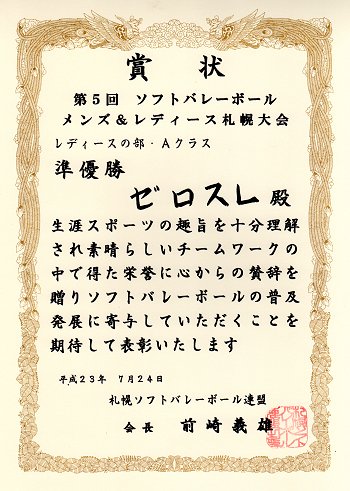 賞状
第5回 ソフトバレーボール
メンズ&レディース札幌大会
レディースの部・Aクラス
準優勝
ゼロスレ殿
生涯スポーツの趣旨を十分理解
され素晴らしいチームワークの
中で得た栄誉に心からの賛辞を
贈りソフトバレーボールの普及
発展に寄与していただくことを
期待して表彰いたします
平成23年 7月24日
札幌ソフトバレーボール連盟
会長 前崎義雄